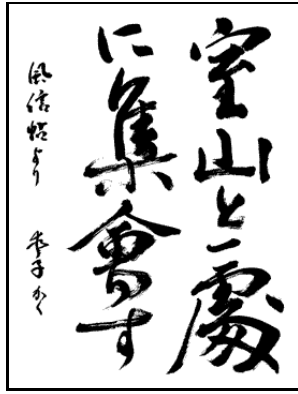 室山と一處
に集會す
風信帖より 子かく